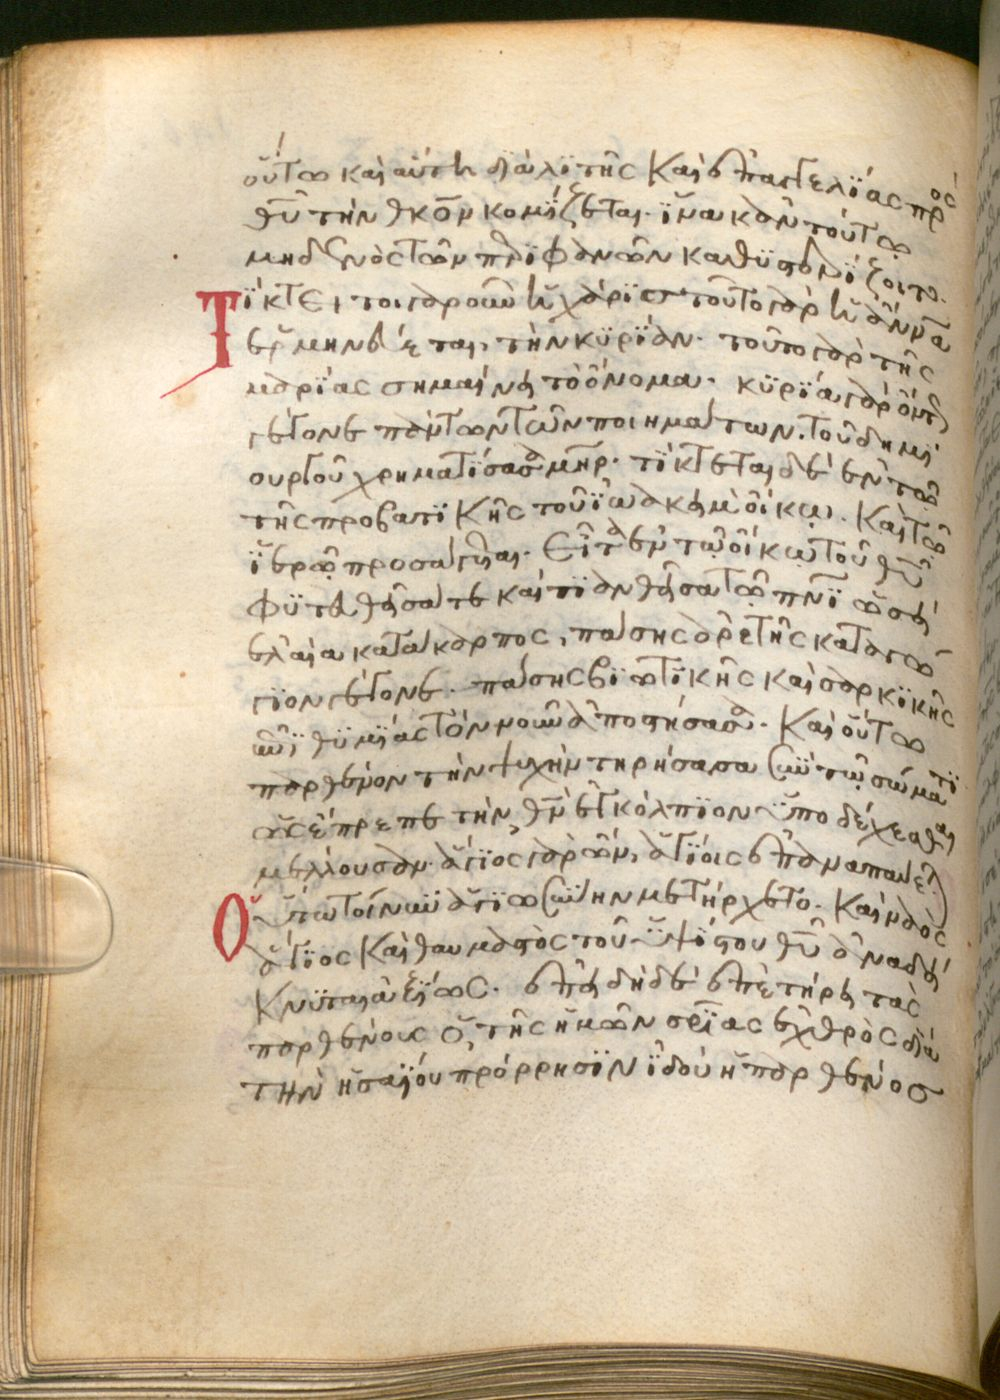 οὕτω καὶ αὕτη διὰ λιτῆς καὶ ἐπαγγελίας πρὸς
θν̅ τὴν ἐκ ὃν κομίζεται. ἵνα κἂν τούτω
μηδενὸς τῶν ἐπιφανῶν καθυστερίζοιτο.
Τίκτει τοιγαροῦν ἡ χάρις τοῦτο γὰρ ἡ ἄννα
ἑρμηνεύεται, τὴν κυρίαν. τοῦτο γὰρ τῆς
μαρίας σημαίνει τὸ ὄνομα. κυρία γὰρ ὄντως
γέγονε πάντων τῶν ποιημάτων. τοῦ δημι
ουργοῦ χρηματίσασα μηρ̅. τίκτεται δὲ ἐν τῶ
τῆς προβατικῆς τοῦ ἰωακεὶμ οἴκῳ. καὶ τῷ
ἱερῷ προσάγεται. Εἶτα ἐν τῷ οἴκῳ τοῦ θυ̅
φυτευθεῖσά τε καὶ πιανθεῖσα τῷ πνι̅ ὡσεὶ
ἐλαία κατάκαρπος, πάσης ἀρετῆς καταγώ
γιον γέγονε. πάσης βιωτικῆς καὶ σαρκικῆς
ἐπιθυμίας τὸν νοῦν ἀποστήσασα. καὶ οὕτω
παρθένον τὴν ψυχὴν τηρήσασα σὺν τῷ σώματι
ὡς ἔπρεπε τὴν θν̅ ἐγκόλπιον ὑποδέχεσθαι
μέλλουσαν. ἅγιος γὰρ ὢν, ἁγίοις ἐπαναπαύε
Οὕτω τοίνυν ἁγιωσύνην μετήρχετο. καὶ ναὸς
ἅγιος καὶ θαυμαστὸς τοῦ ὑψίστου θυ̅ ἀναδεί
κνυται ἀξίως. ἐπειδὴ δὲ ἐπετήρει τὰς
παρθένους ὁ τῆς ἡμῶν σρι̅ας ἐχθρὸς διὰ
τὴν ἡσαΐου πρόρρησιν ἰδοὺ ἡ παρθένος